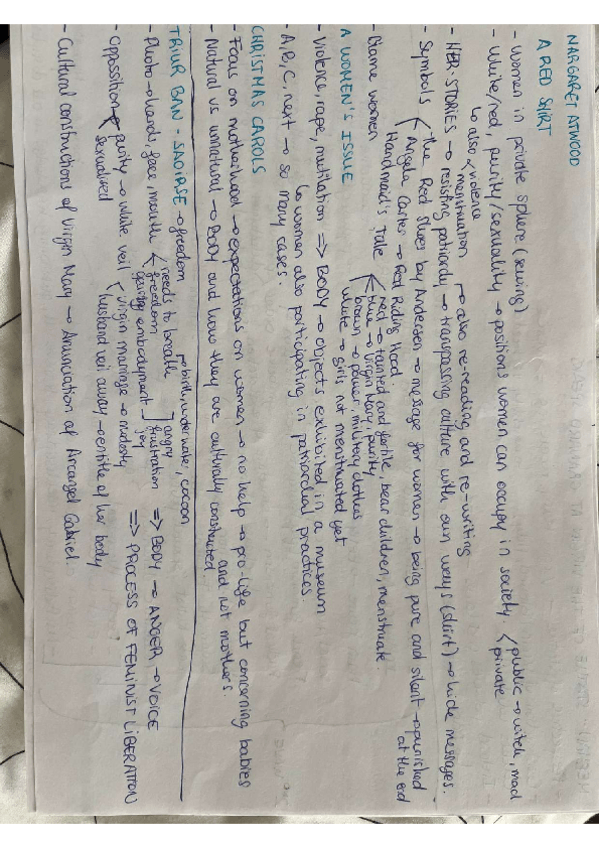 MARGARET ATWOOD
A RED SHIRT
- Women in private sphere (sewing)
- White/red, purity/sexuality → positions women can occupy in society < public → witch, mad
private
↳ also < menstruation
violence
- HER-STORIES → resisting patriarchy → trespassing culture with own ways (shirt) → hide messages.
→ also re-reading and re-writing
- Symbols < the Red Shoes by Andersen → message for women → being pure and silent → punished at the end
Angela Carter → Red Riding Hood.
Handmaid's Tale < red → tainted and fertile, bear children, menstruate.
blue → Virgin Mary, purity
brown → power, military clothes
white → girls not menstruated yet
- Blame women
A WOMEN'S ISSUE
- Violence, rape, mutilation => BODY → objects exhibited in a museum
↳ women also participating in patriarchal practices.
- A, B, C, next → so many cases.
CHRISTMAS CAROLS
- Focus on motherhood → expectations on women → no help → pro-life but concerning babies
and not mothers.
- Natural vs unnatural → BODY and how they are culturally constructed.
TRIUR BAN - SAOIRSE → freedom
rebirth, underwater, cocoon
- Photo → hands, face, mouth < needs to breathe
freedom
embodyment
] angry
frustration
joy
=> BODY → ANGER → VOICE
=> PROCESS OF FEMINIST LIBERATION
- Opposition → purity → white veil < virgin marriage → modesty
husband veil away → entitle of her body
sexualized
- Cultural constructions of Virgin Mary → Anunciation of Arcangel Gabriel.